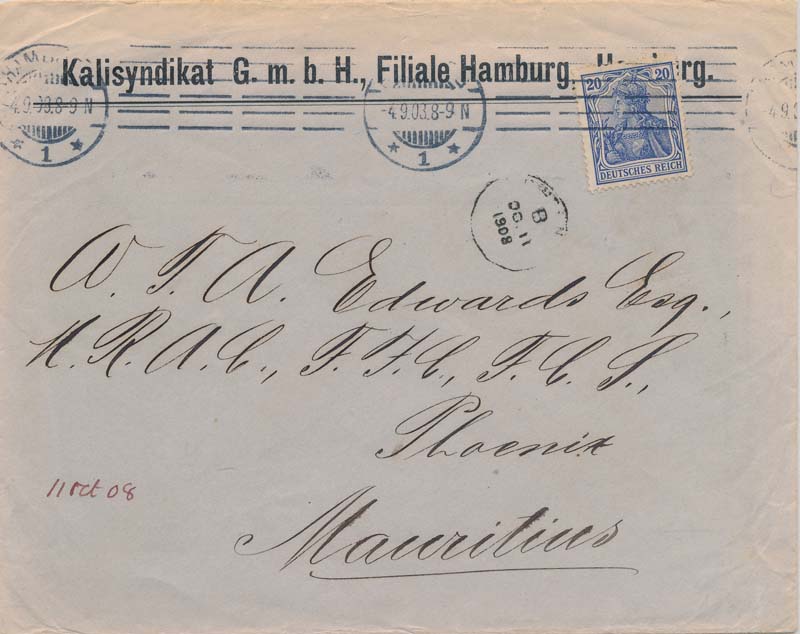 Kalisyndikat G. m. b. H., Filiale Hamburg, Hamburg.
20 20
DEUTSCHES REICH
-4.9.03.8-9 N
* 1 *
-4.9.03.8-9 N
* 1 *
4.9.0
B
OC 11
1908
W. T. A. Edwards Esq.,
M. R. A. C., F. I. C., F. C. S.,
Phoenix
Mauritius
11 Oct 08